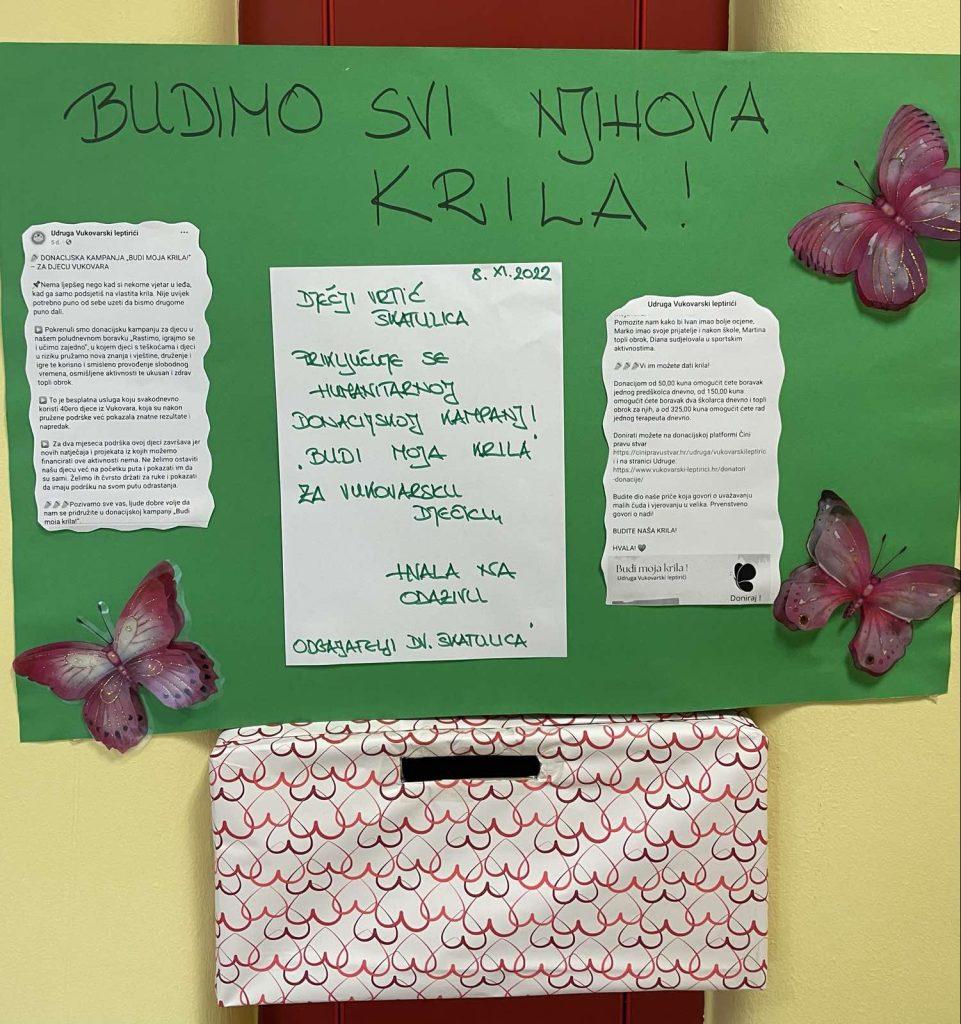 BUDIMO SVI NJIHOVA
KRILA!
Udruga Vukovarski leptirići
5 d.
DONACIJSKA KAMPANJA „BUDI MOJA KRILA!"
– ZA DJECU VUKOVARA
📌Nema ljepšeg nego kad si nekome vjetar u leđa,
kad ga samo podsjetiš na vlastita krila. Nije uvijek
potrebno puno od sebe uzeti da bismo drugome
puno dali.
▶ Pokrenuli smo donacijsku kampanju za djecu u
našem poludnevnom boravku „Rastimo, igrajmo se
i učimo zajedno", u kojem djeci s teškoćama i djeci
u riziku pružamo nova znanja i vještine, druženje i
igre te korisno i smisleno provođenje slobodnog
vremena, osmišljene aktivnosti te ukusan i zdrav
topli obrok.
▶ To je besplatna usluga koju svakodnevno
koristi 40ero djece iz Vukovara, koja su nakon
pružene podrške već pokazala znatne rezultate i
napredak.
▶ Za dva mjeseca podrška ovoj djeci završava jer
novih natječaja i projekata iz kojih možemo
financirati ove aktivnosti nema. Ne želimo ostaviti
našu djecu već na početku puta i pokazati im da
su sami. Želimo ih čvrsto držati za ruke i pokazati
da imaju podršku na svom putu odrastanja.
Pozivamo sve vas, ljude dobre volje da
nam se pridružite u donacijskoj kampanji „Budi
moja krila!".
8. XI. 2022
DJEČJI VRTIĆ
ŠKATULICA
PRIKLJUČUJE SE
HUMANITARNOJ
DONACIJSKOJ KAMPANJI
"BUDI MOJA KRILA"
ZA VUKOVARSKU
DJEČICU
HVALA NA
ODAZIVU
ODGAJATELJI DV. "ŠKATULICA"
Udruga Vukovarski leptirići
Pomozite nam kako bi Ivan imao bolje ocjene,
Marko imao svoje prijatelje i nakon škole, Martina
topli obrok, Diana sudjelovala u sportskim
aktivnostima.
Vi im možete dati krila!
Donacijom od 50,00 kuna omogućit ćete boravak
jednog predškolca dnevno, od 150,00 kuna
omogućit ćete boravak dva školarca dnevno i topli
obrok za njih, a od 325,00 kuna omogućit ćete rad
jednog terapeuta dnevno.
Donirati možete na donacijskoj platformi Čini
pravu stvar
https://cinipravustvar.hr/udruga/vukovarskileptiric
i i na stranici Udruge
https://www.vukovarski-leptirici.hr/donatori
-donacije/
Budite dio naše priče koja govori o uvažavanju
malih čuda i vjerovanju u velika. Prvenstveno
govori o nadi!
BUDITE NAŠA KRILA!
HVALA! 🖤
Budi moja krila !
Udruga Vukovarski leptirići
Doniraj !